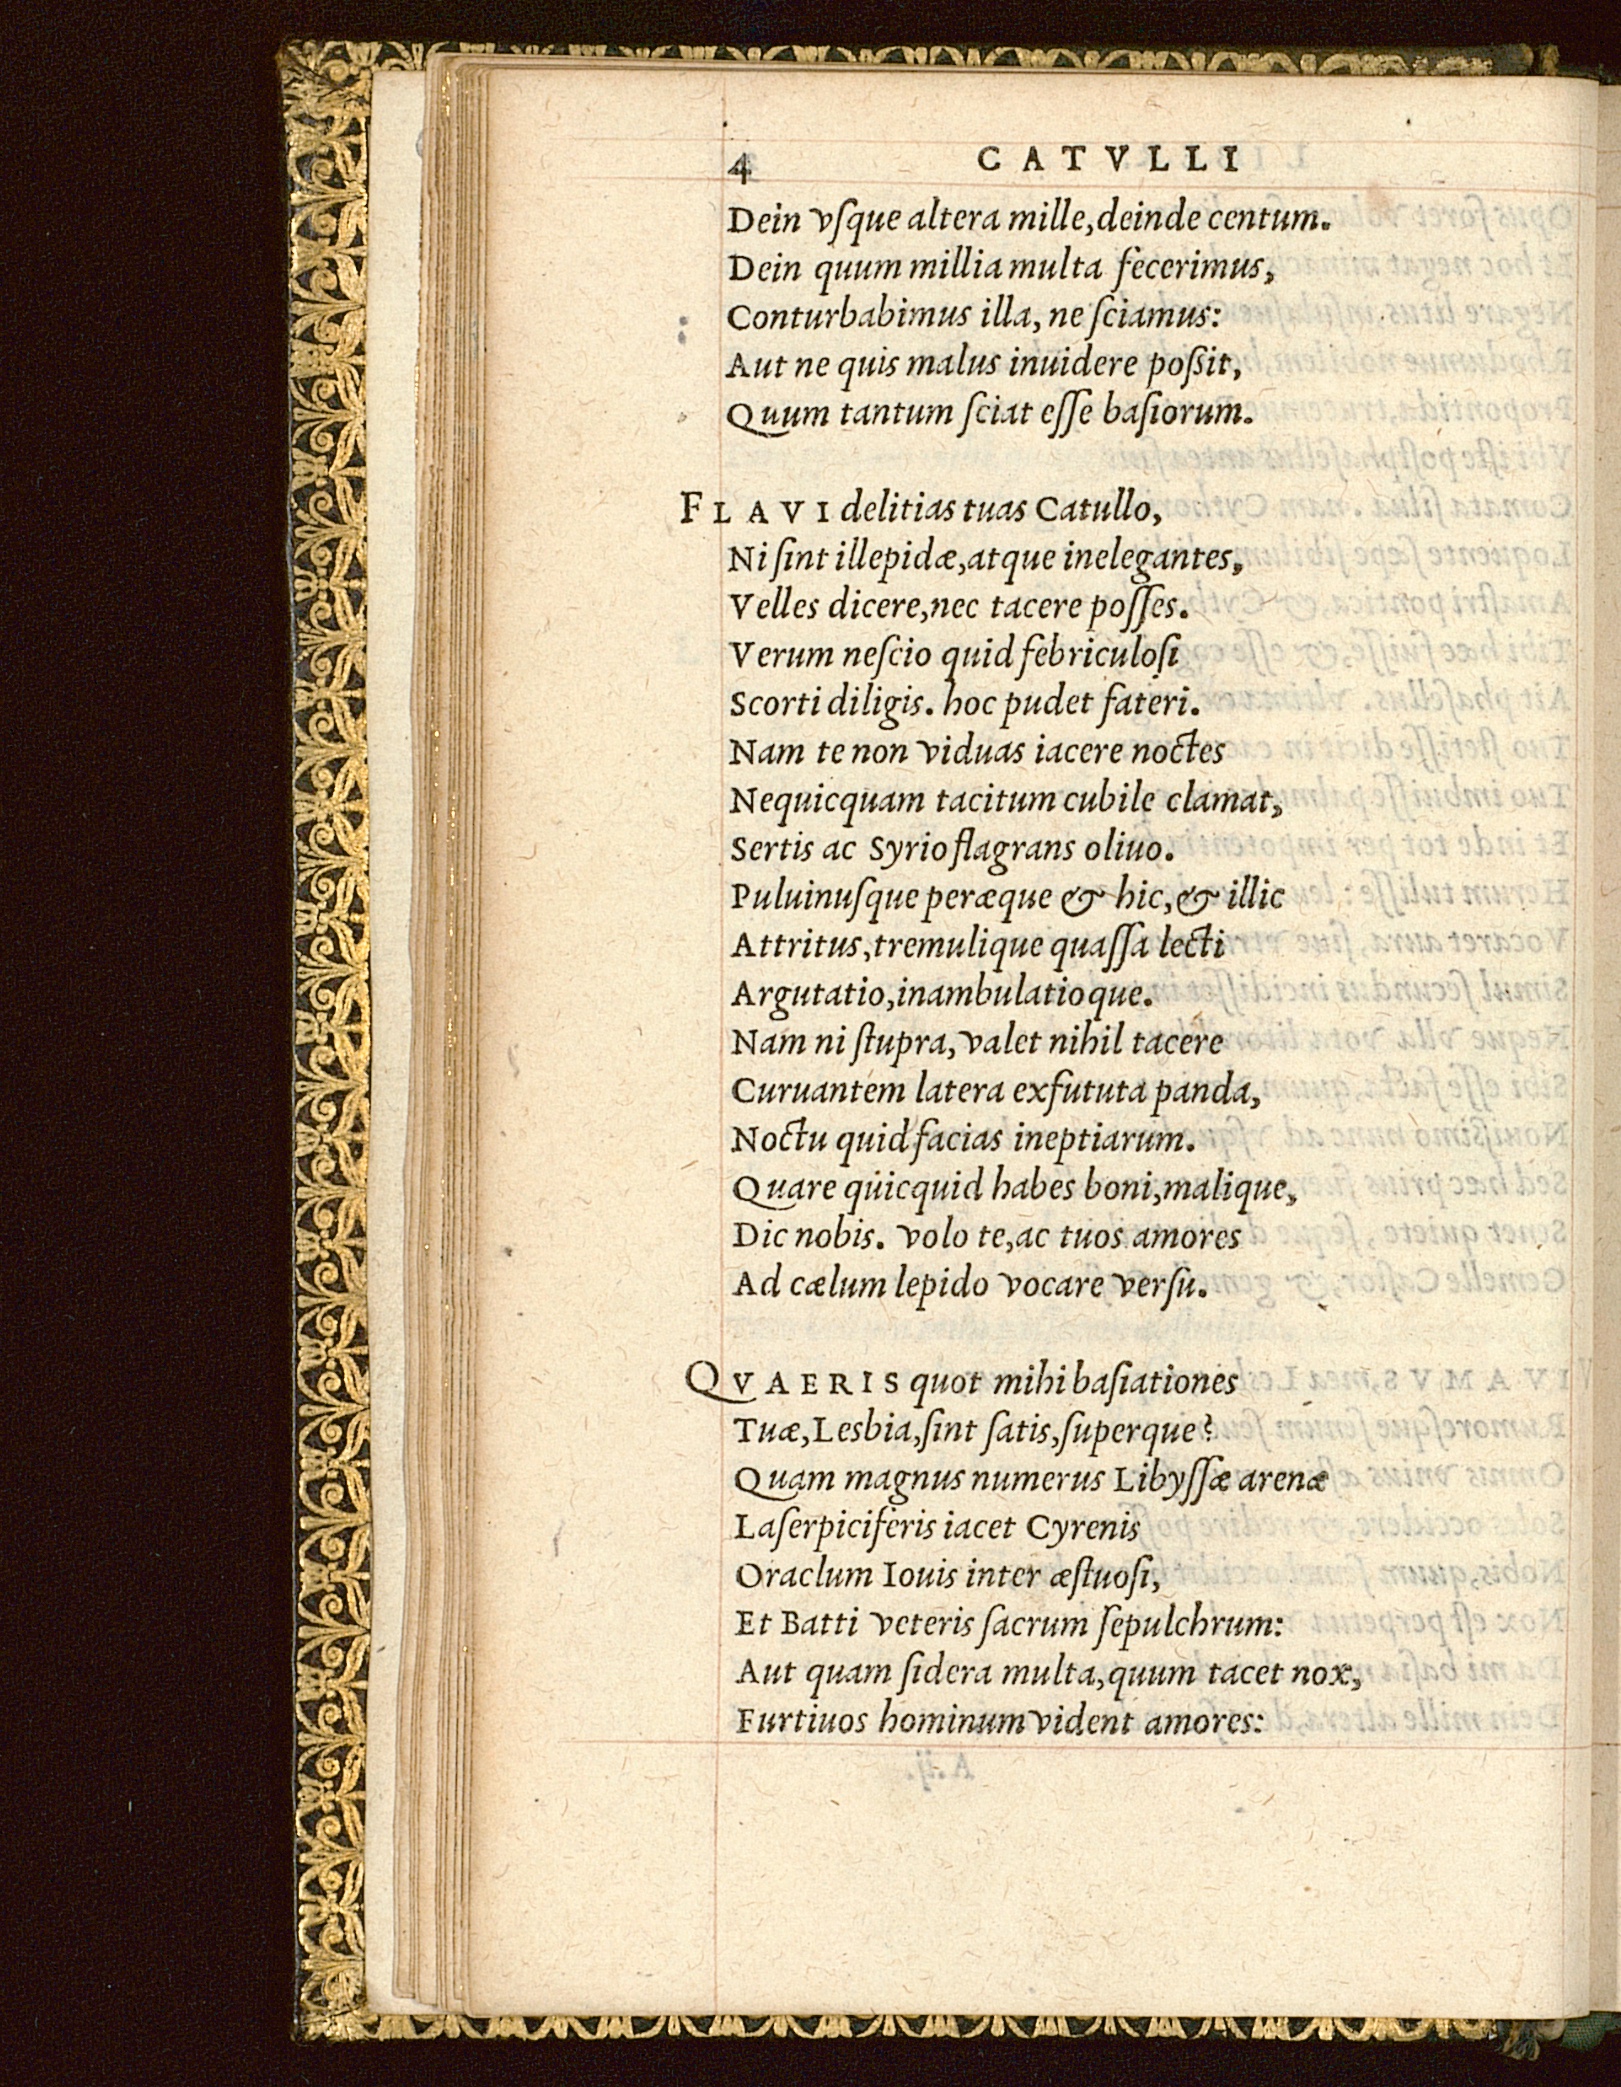 4 CATVLLI
Dein vſque altera mille, deinde centum.
Dein quum millia multa fecerimus,
Conturbabimus illa, ne ſciamus:
Aut ne quis malus inuidere poßit,
Quum tantum ſciat eſſe baſiorum.
FLAVI delitias tuas Catullo,
Ni ſint illepidæ, atque inelegantes,
Velles dicere, nec tacere poſſes.
Verum neſcio quid febriculoſi
Scorti diligis. hoc pudet fateri.
Nam te non viduas iacere noctes
Nequicquam tacitum cubile clamat,
Sertis ac Syrio flagrans oliuo.
Puluinuſque peræque & hic, & illic
Attritus, tremulique quaſſa lecti
Argutatio, inambulatioque.
Nam ni ſtupra, valet nihil tacere
Curuantem latera exfututa panda,
Noctu quid facias ineptiarum.
Quare quicquid habes boni, malique,
Dic nobis. volo te, ac tuos amores
Ad cælum lepido vocare verſu.
QVAERIS quot mihi baſiationes
Tuæ, Lesbia, ſint ſatis, ſuperque?
Quam magnus numerus Libyſſæ arenæ
Laſerpiciferis iacet Cyrenis
Oraclum Iouis inter æſtuoſi,
Et Batti veteris ſacrum ſepulchrum:
Aut quam ſidera multa, quum tacet nox,
Furtiuos hominum vident amores: